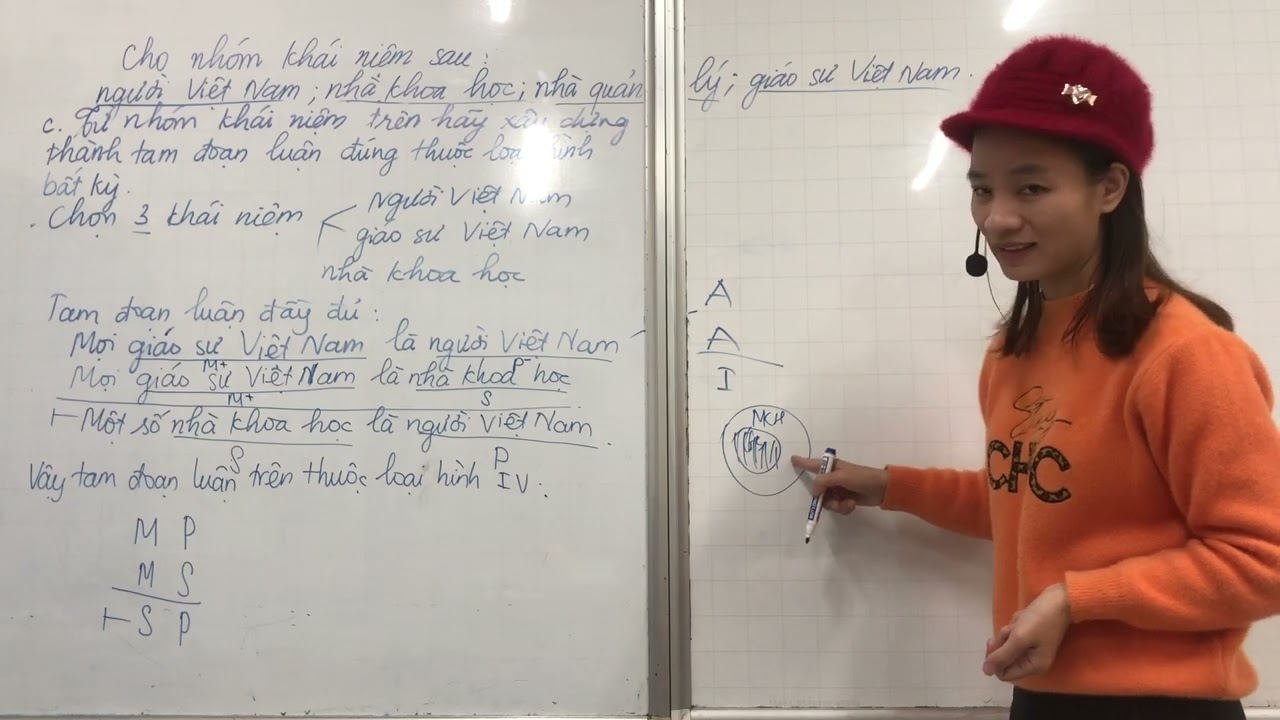 Cho nhóm khái niệm sau:
người Việt Nam; nhà khoa học; nhà quản lý; giáo sư Việt Nam.
c. Từ nhóm khái niệm trên hãy xây dựng
thành tam đoạn luận đúng thuộc loại hình
bất kỳ.
. Chọn 3 khái niệm
Người Việt Nam
giáo sư Việt Nam
nhà khoa học
Tam đoạn luận đầy đủ:
Mọi giáo sư Việt Nam là người Việt Nam
M+ P-
Mọi giáo sư Việt Nam là nhà khoa học
M+ S
⊢ Một số nhà khoa học là người Việt Nam.
S P
Vậy tam đoạn luận trên thuộc loại hình IV.
M P
M S
⊢ S P
A
A
I
NKH
CHC